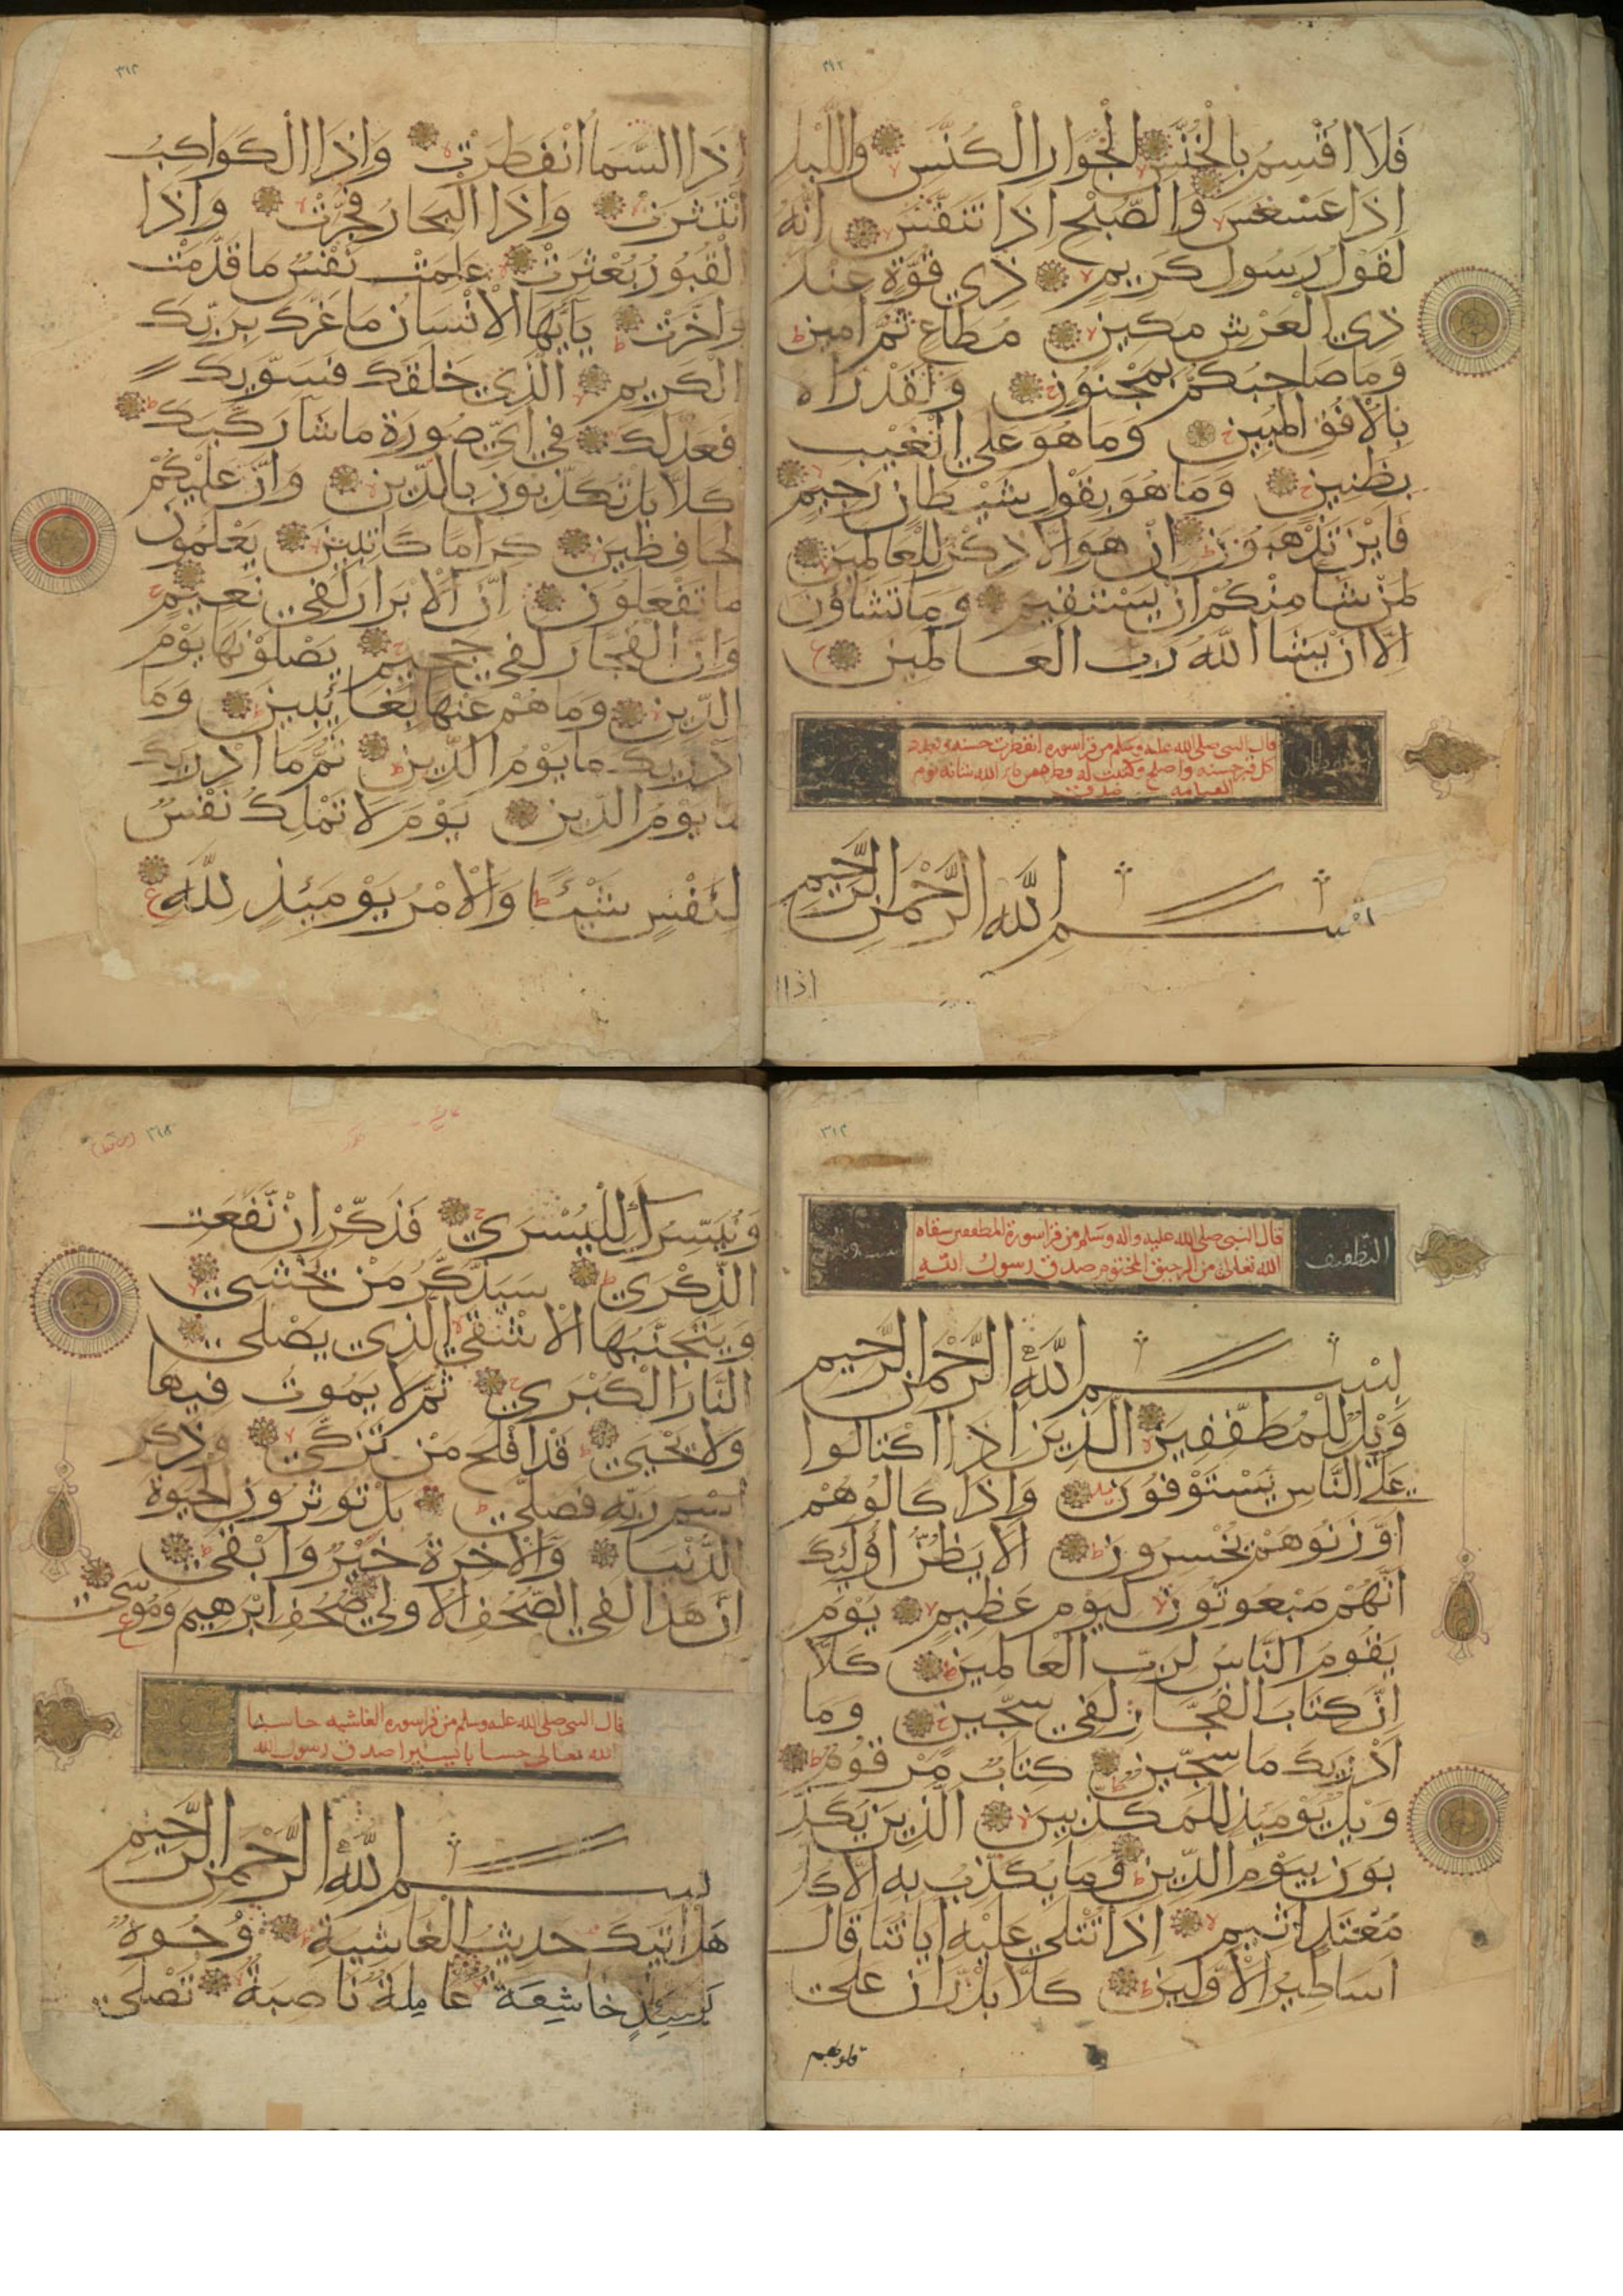 ٣١٢
فَلَا اُقْسِمُ بِالْخُنَّسِ الْجَوَارِ الْكُنَّسِ وَاللَّيْلِ
اِذَا عَسْعَسَ وَالصُّبْحِ اِذَا تَنَفَّسَ اِنَّهُ
لَقَوْلُ رَسُولٍ كَرِيمٍ ذِي قُوَّةٍ عِنْدَ
ذِي الْعَرْشِ مَكِينٍ مُطَاعٍ ثَمَّ اَمِينٍ
وَمَا صَاحِبُكُمْ بِمَجْنُونٍ وَلَقَدْ رَاهُ
بِالْاُفُقِ الْمُبِينِ وَمَا هُوَ عَلَي الْغَيْبِ
بِظَنِينٍ وَمَا هُوَ بِقَوْلِ شَيْطَانٍ رَجِيمٍ
فَاَيْنَ تَذْهَبُونَ اِنْ هُوَ اِلَّا ذِكْرٌ لِلْعَالَمِينَ
لِمَنْ شَا مِنْكُمْ اَنْ يَسْتَقِيمَ وَمَا تَشَاؤُنَ
اِلَّا اَنْ يَشَا اللّٰهُ رَبُّ الْعَالَمِينَ
قال النبي صلى الله عليه وسلم من قرا سوره انفطرت
بسم اللّٰهِ الرَّحْمٰنِ الرَّحِيمِ
اذا ا
٣١٣
اِذَا السَّمَا انْفَطَرَتْ وَاِذَا الْكَوَاكِبُ
انْتَثَرَتْ وَاِذَا الْبِحَارُ فُجِّرَتْ وَاِذَا
الْقُبُورُ بُعْثِرَتْ عَلِمَتْ نَفْسٌ مَا قَدَّمَتْ
وَاَخَّرَتْ يَاَيُّهَا الْاِنْسَانُ مَا غَرَّكَ بِرَبِّكَ
الْكَرِيمِ الَّذِي خَلَقَكَ فَسَوّٰيكَ
فَعَدَلَكَ فِي اَيِّ صُورَةٍ مَا شَا رَكَّبَكَ
كَلَّا بَلْ تُكَذِّبُونَ بِالدِّينِ وَاِنَّ عَلَيْكُمْ
لَحَافِظِينَ كِرَامًا كَاتِبِينَ يَعْلَمُونَ
مَا تَفْعَلُونَ اِنَّ الْاَبْرَارَ لَفِي نَعِيمٍ
وَاِنَّ الْفُجَّارَ لَفِي جَحِيمٍ يَصْلَوْنَهَا يَوْمَ
الدِّينِ وَمَا هُمْ عَنْهَا بِغَائِبِينَ وَمَا
اَدْرٰيكَ مَا يَوْمُ الدِّينِ ثُمَّ مَا اَدْرٰيكَ
مَا يَوْمُ الدِّينِ يَوْمَ لَا تَمْلِكُ نَفْسٌ
لِنَفْسٍ شَيْئًا وَالْاَمْرُ يَوْمَئِذٍ لِلّٰهِ
٣١٤
التطفيف
قال النبي صلى الله عليه واله وسلم من قرا سورة المطففين سقاه
الله تعالى من الرحيق المختوم صدق رسول الله
بِسْمِ اللّٰهِ الرَّحْمٰنِ الرَّحِيمِ
وَيْلٌ لِلْمُطَفِّفِينَ الَّذِينَ اِذَا اكْتَالُوا
عَلَي النَّاسِ يَسْتَوْفُونَ وَاِذَا كَالُوهُمْ
اَوْ زَنُوهُمْ يُخْسِرُونَ اَلَا يَظُنُّ اُولٰئِكَ
اَنَّهُمْ مَبْعُوثُونَ لِيَوْمٍ عَظِيمٍ يَوْمَ
يَقُومُ النَّاسُ لِرَبِّ الْعَالَمِينَ كَلَّا
اِنَّ كِتَابَ الْفُجَّارِ لَفِي سِجِّينٍ وَمَا
اَدْرٰيكَ مَا سِجِّينٌ كِتَابٌ مَرْقُومٌ
وَيْلٌ يَوْمَئِذٍ لِلْمُكَذِّبِينَ الَّذِينَ يُكَذِّ
بُونَ بِيَوْمِ الدِّينِ وَمَا يُكَذِّبُ بِهِ اِلَّا كُلُّ
مُعْتَدٍ اَثِيمٍ اِذَا تُتْلَي عَلَيْهِ ايَاتُنَا قَالَ
اَسَاطِيرُ الْاَوَّلِينَ كَلَّا بَلْ رَانَ عَلَي
قلوبهم
٣١٥
وَنُيَسِّرُكَ لِلْيُسْرَي فَذَكِّرْ اِنْ نَفَعَتِ
الذِّكْرَي سَيَذَّكَّرُ مَنْ يَخْشَي
وَيَتَجَنَّبُهَا الْاَشْقَي الَّذِي يَصْلَي
النَّارَ الْكُبْرَي ثُمَّ لَا يَمُوتُ فِيهَا
وَلَا يَحْيَي قَدْ اَفْلَحَ مَنْ تَزَكَّي وَذَكَرَ
اسْمَ رَبِّهِ فَصَلَّي بَلْ تُوثِرُونَ الْحَيٰوةَ
الدُّنْيَا وَالْاٰخِرَةُ خَيْرٌ وَاَبْقَي
اِنَّ هَذَا لَفِي الصُّحُفِ الْاُولَي صُحُفِ اِبْرٰهِيمَ وَمُوسَي
قال النبي صلى الله عليه وسلم من قرا سوره الغاشيه حاسبه
الله تعالى حسابا يسيرا صدق رسول الله
بسم اللّٰهِ الرَّحْمٰنِ الرَّحِيمِ
هَلْ اَتٰيكَ حَدِيثُ الْغَاشِيَةِ وُجُوهٌ
يَوْمَئِذٍ خَاشِعَةٌ عَامِلَةٌ نَاصِبَةٌ تَصْلَي